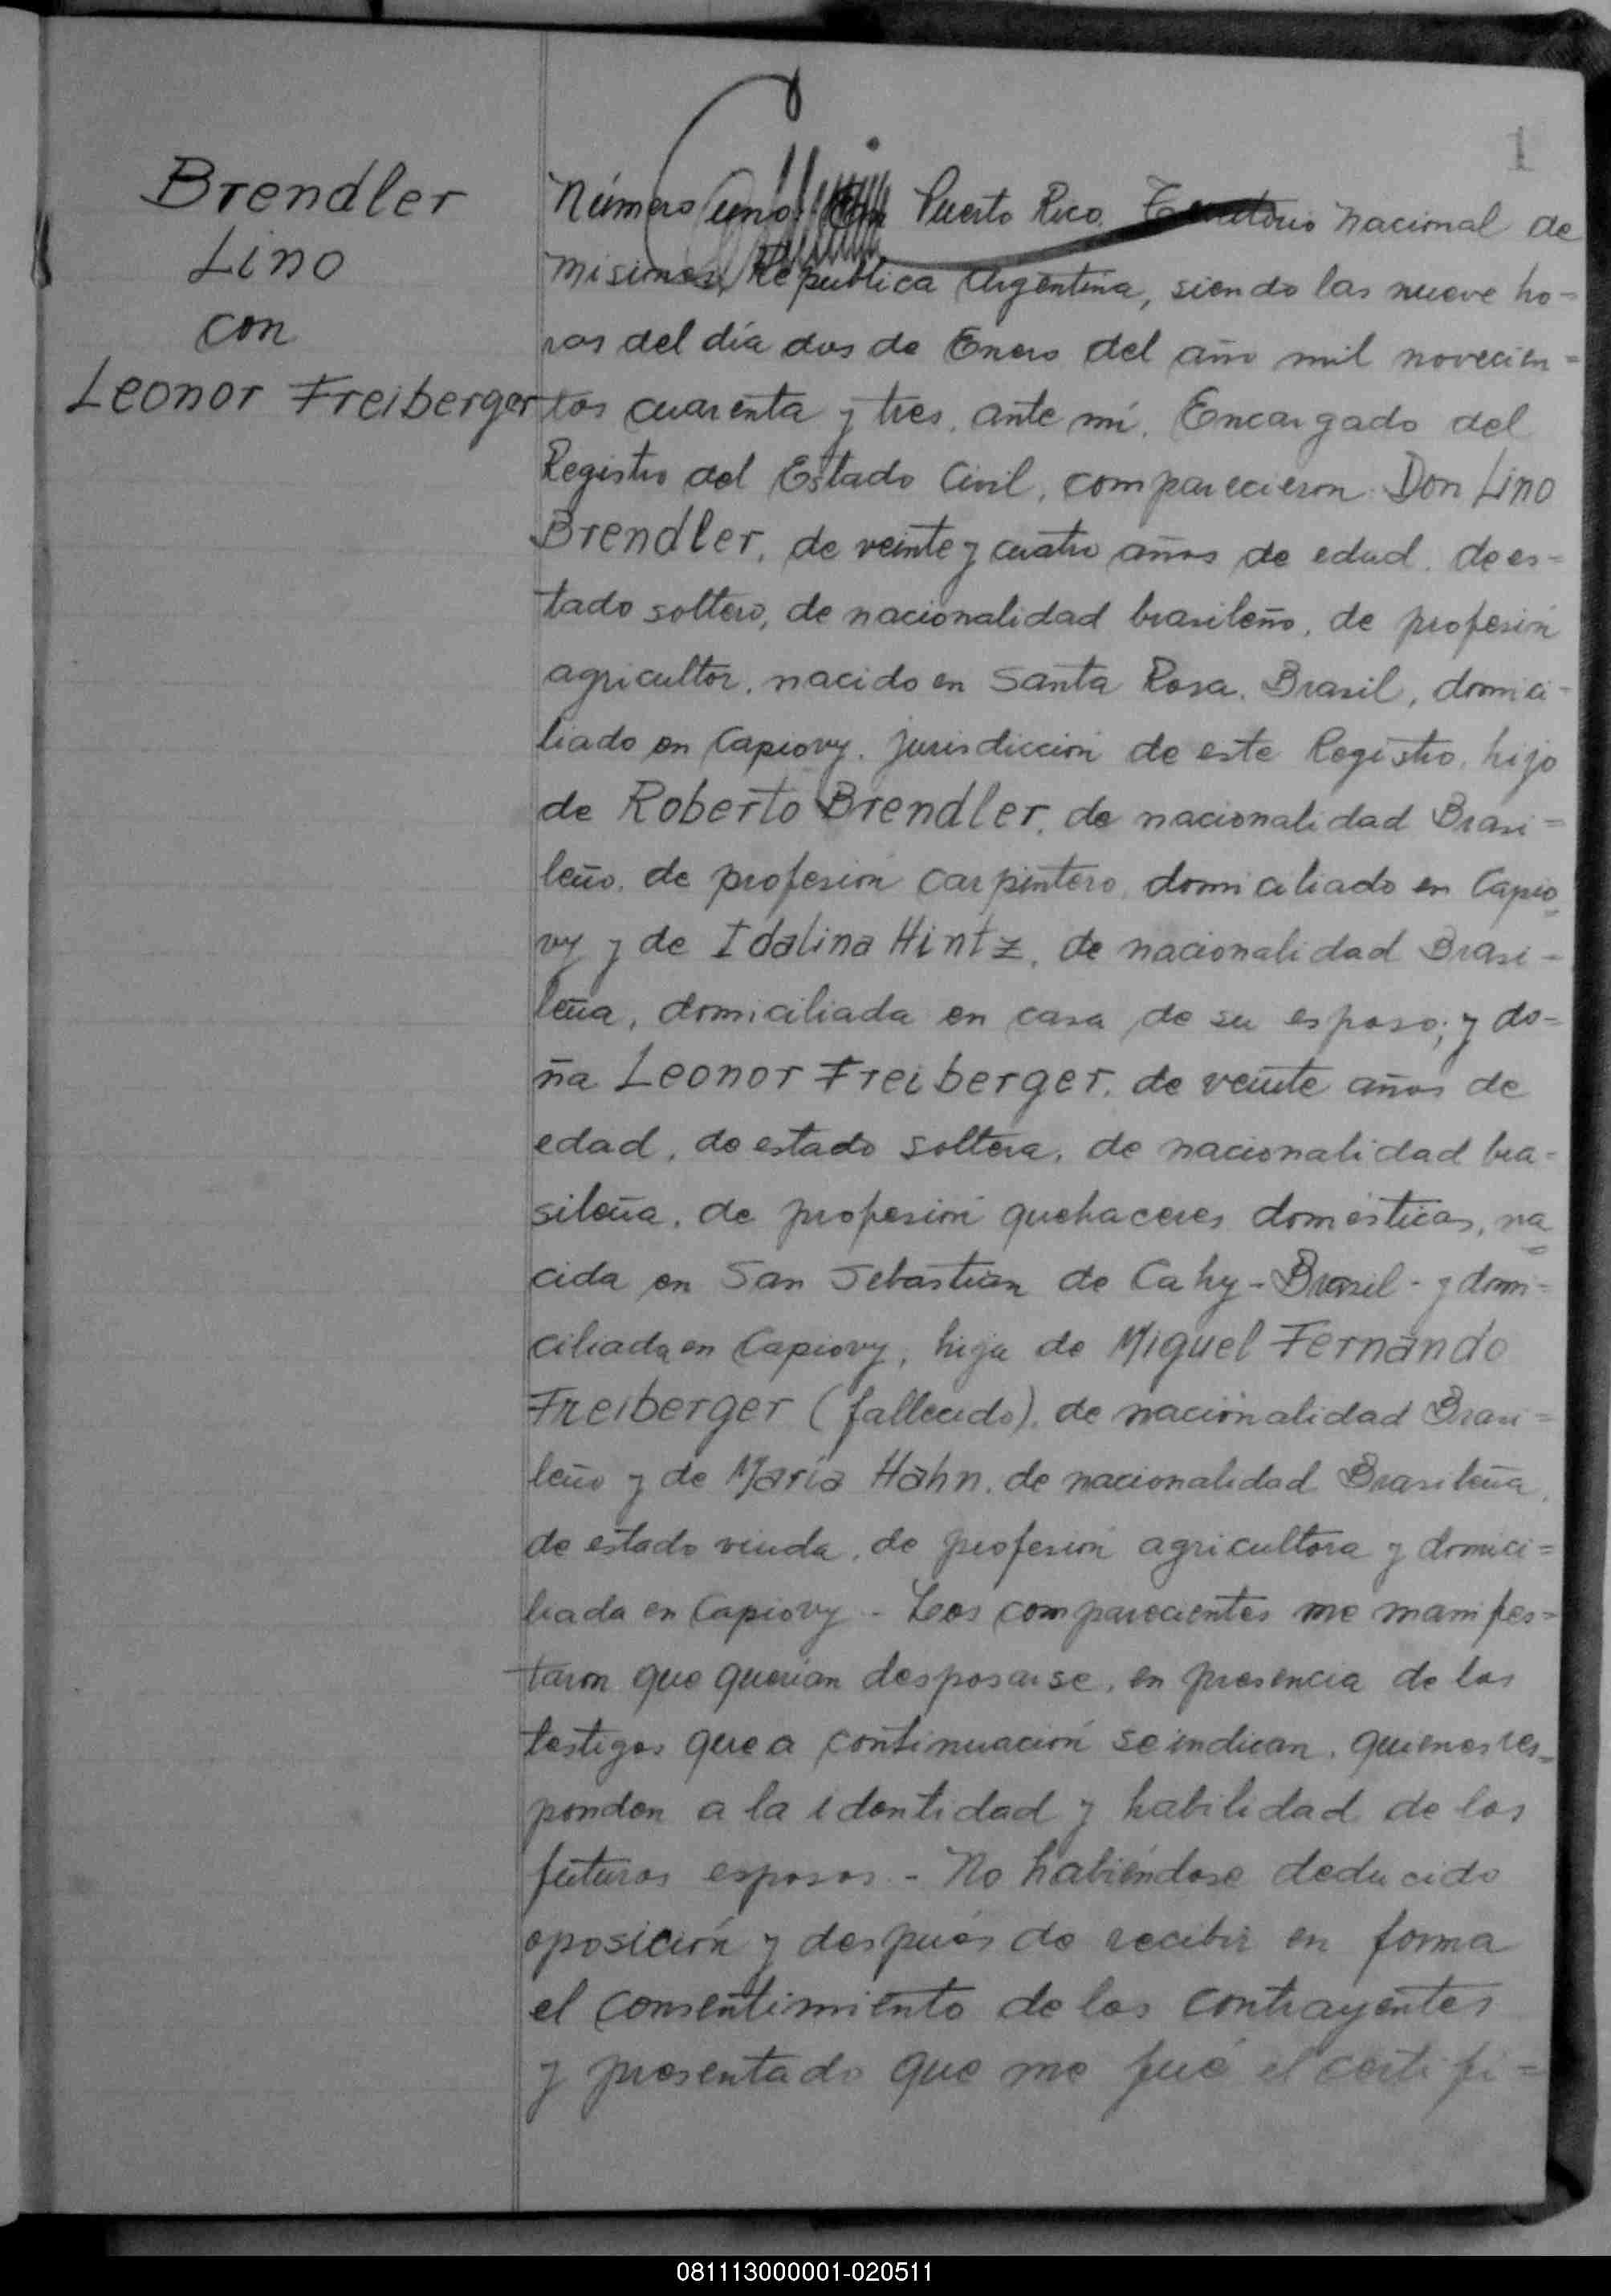 1
Brendler
Lino
con
Leonor Freiberger
Número uno: En Puerto Rico. Territorio Nacional de
Misiones, República Argentina, siendo las nueve ho=
ras del día dos de Enero del año mil novecien=
tos cuarenta y tres, ante mí, Encargado del
Registro del Estado Civil, comparecieron: Don Lino
Brendler, de veinte y cuatro años de edad, de es=
tado soltero, de nacionalidad brasileño, de profesión
agricultor, nacido en Santa Rosa, Brasil, domici=
liado en Capiovy, jurisdicción de este Registro, hijo
de Roberto Brendler, de nacionalidad Brasi=
leño, de profesión carpintero, domiciliado en Capio
vy y de Idalina Hintz, de nacionalidad Brasi=
leña, domiciliada en casa de su esposo; y do=
ña Leonor Freiberger, de veinte años de
edad, de estado soltera, de nacionalidad bra=
sileña, de profesión quehaceres domésticos, na
cida en San Sebastian de Cahy - Brasil - y domi=
ciliada en Capiovy, hija de Miguel Fernando
Freiberger (fallecido), de nacionalidad Brasi=
leño y de María Hahn, de nacionalidad Brasileña,
de estado viuda, de profesión agricultora y domici=
liada en Capiovy - Los comparecientes me manifes=
taron que querían desposarse, en presencia de los
testigos que a continuación se indican, quienes res=
ponden a la identidad y habilidad de los
futuros esposos. - No habiéndose deducido
oposición y después de recibir en forma
el consentimiento de los contrayentes
y presentado que me fué el certifi=
081113000001-020511